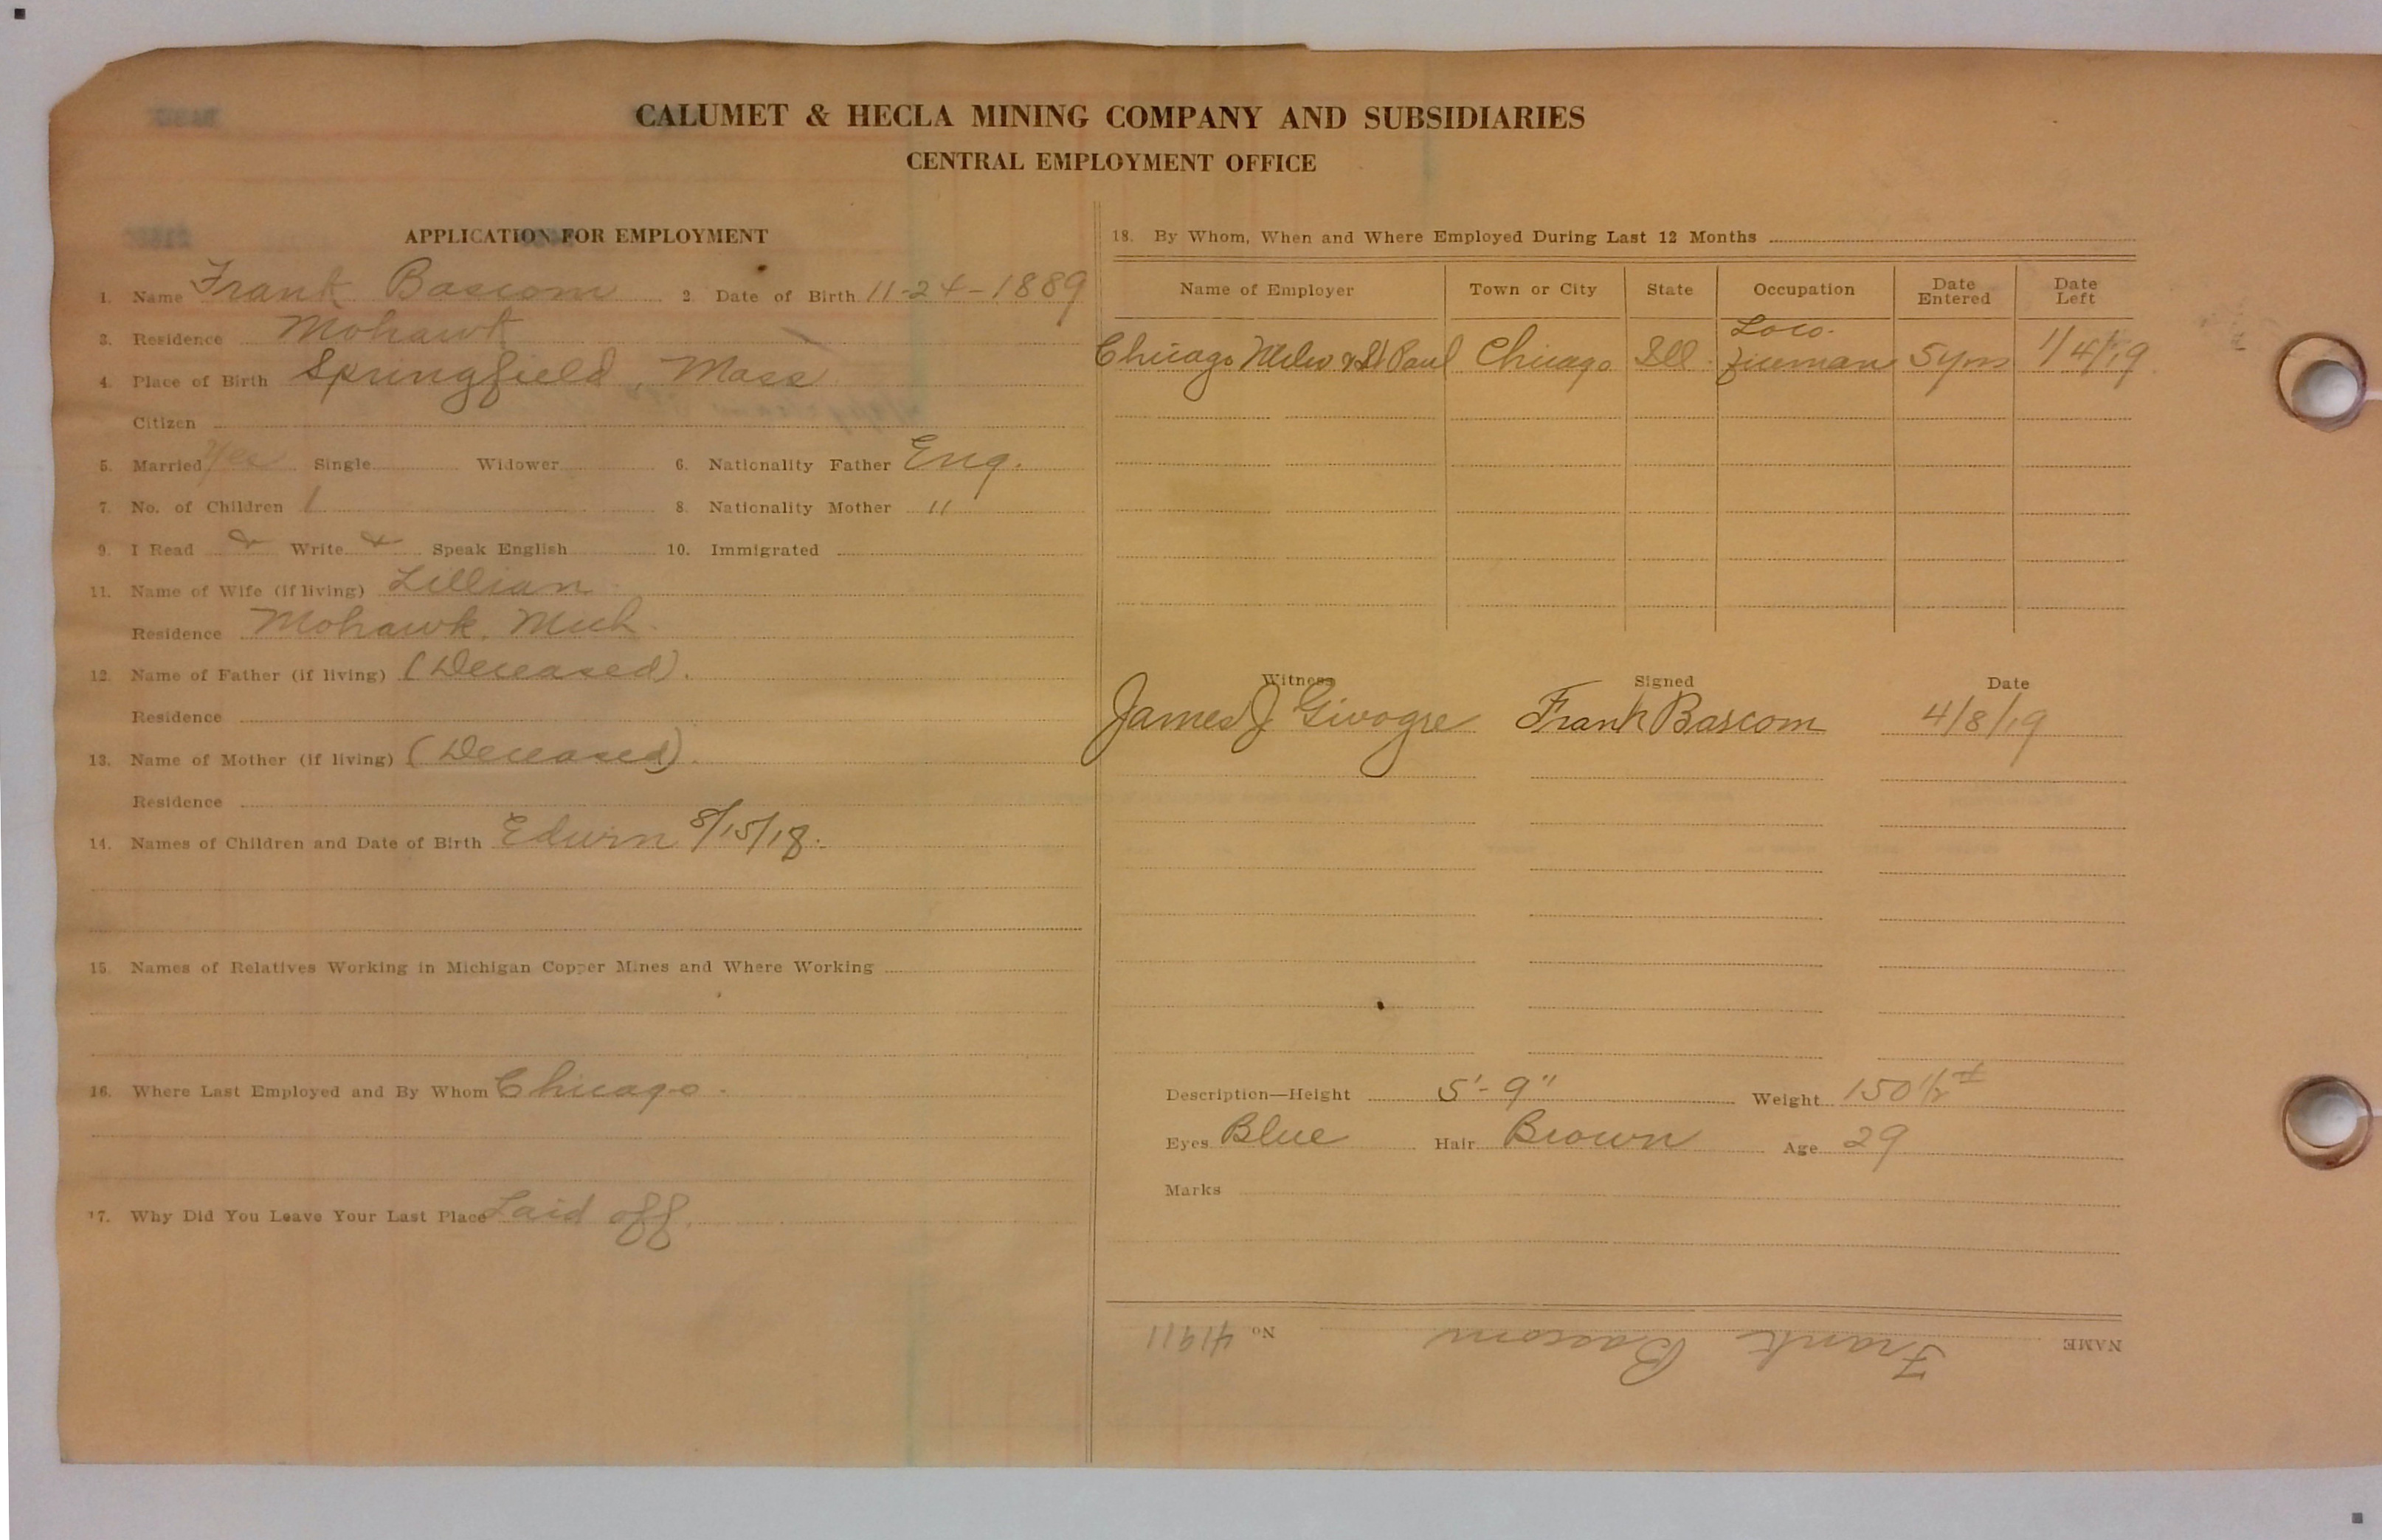 CALUMET & HECLA MINING COMPANY AND SUBSIDIARIES
CENTRAL EMPLOYMENT OFFICE
APPLICATION FOR EMPLOYMENT
1. Name Frank Bascom 2. Date of Birth 11-24-1889
3. Residence Mohawk
4. Place of Birth Springfield, Mass
Citizen
5. Married Yes Single Widower 6. Nationality Father Eng.
7. No. of Children 1 8. Nationality Mother "
9. I Read & Write & Speak English 10. Immigrated
11. Name of Wife (if living) Lillian
Residence Mohawk, Mich.
12. Name of Father (if living) (Deceased).
Residence
13. Name of Mother (if living) (Deceased).
Residence
14. Names of Children and Date of Birth Edwin 8/15/18.
15. Names of Relatives Working in Michigan Copper Mines and Where Working
16. Where Last Employed and By Whom Chicago.
17. Why Did You Leave Your Last Place Laid off.
18. By Whom, When and Where Employed During Last 12 Months
Name of Employer Town or City State Occupation Date Entered Date Left
Chicago Milw & St Paul Chicago Ill. Loco. fireman 5 yrs 1/4/19
Witness Signed Date
James J Givogre Frank Bascom 4/8/19
Description—Height 5'-9" Weight 150 1/2 #
Eyes Blue Hair Brown Age 29
Marks
NAME Frank Bascom No. 41911